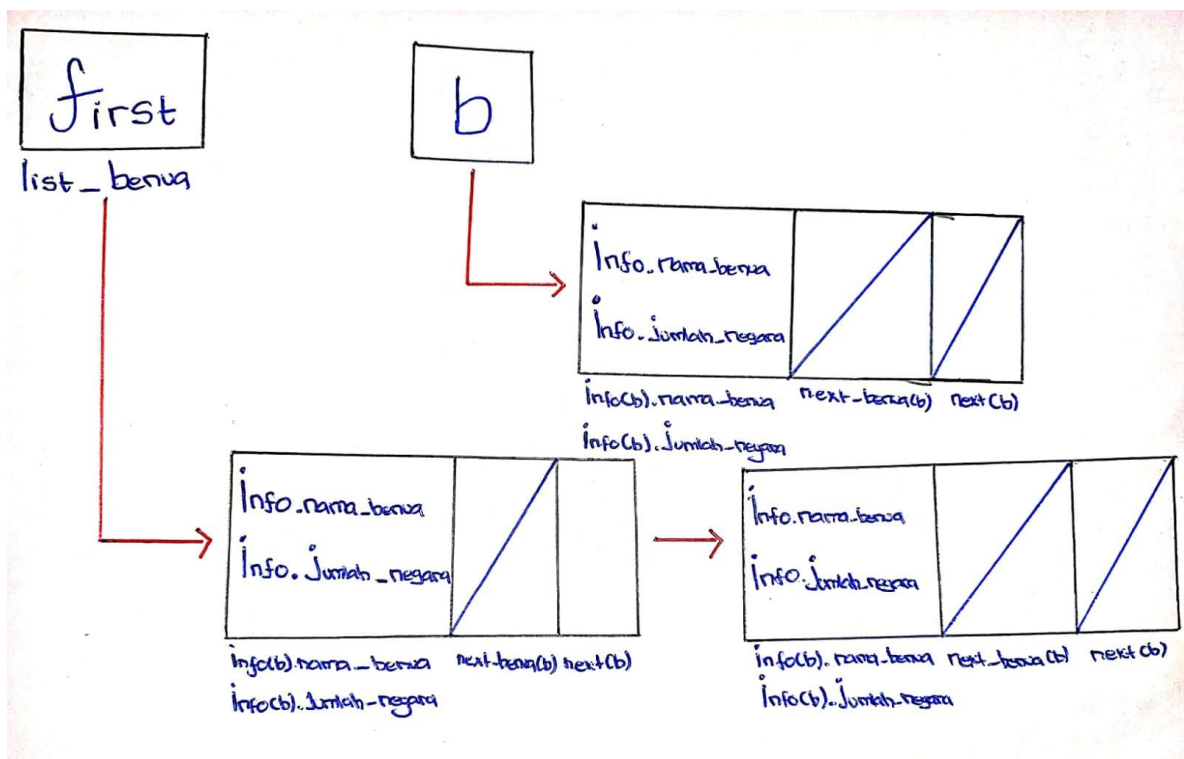 first
list_benua
b
Info.nama_benua
Info.jumlah_negara
info(b).nama_benua next_benua(b) next(b)
info(b).jumlah_negara
Info.nama_benua
Info.jumlah_negara
info(b).nama_benua next_benua(b) next(b)
info(b).jumlah_negara
Info.nama_benua
Info.jumlah_negara
info(b).nama_benua next_benua(b) next(b)
info(b).jumlah_negara